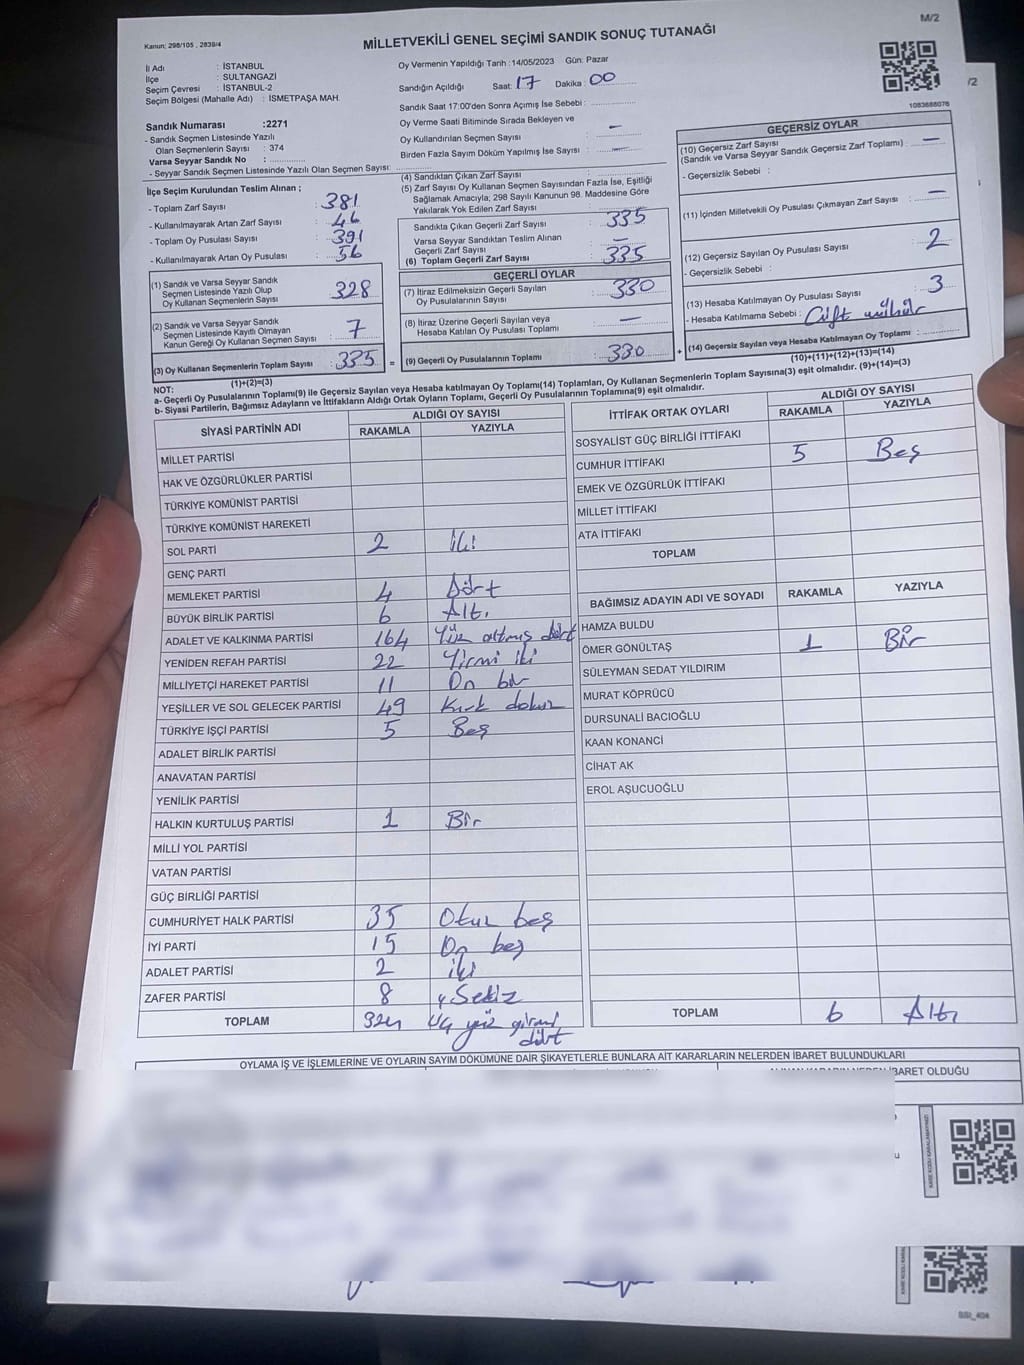 M/2
Kanun: 298/105 , 2839/4
MİLLETVEKİLİ GENEL SEÇİMİ SANDIK SONUÇ TUTANAĞI
İl Adı : İSTANBUL
İlçe : SULTANGAZİ
Seçim Çevresi : İSTANBUL-2
Seçim Bölgesi (Mahalle Adı) : İSMETPAŞA MAH.
Oy Vermenin Yapıldığı Tarih :14/05/2023 Gün: Pazar
Sandığın Açıldığı Saat: 17 Dakika: 00
Sandık Saat 17:00'den Sonra Açımış İse Sebebi :
Oy Verme Saati Bitiminde Sırada Bekleyen ve
Oy Kullandırılan Seçmen Sayısı : —
Birden Fazla Sayım Döküm Yapılmış İse Sayısı : —
/2
1083688076
Sandık Numarası :2271
- Sandık Seçmen Listesinde Yazılı
Olan Seçmenlerin Sayısı : 374
Varsa Seyyar Sandık No :
- Seyyar Sandık Seçmen Listesinde Yazılı Olan Seçmen Sayısı:
İlçe Seçim Kurulundan Teslim Alınan ;
- Toplam Zarf Sayısı : 381
- Kullanılmayarak Artan Zarf Sayısı : 46
- Toplam Oy Pusulası Sayısı : 391
- Kullanılmayarak Artan Oy Pusulası : 56
(1) Sandık ve Varsa Seyyar Sandık
Seçmen Listesinde Yazılı Olup
Oy Kullanan Seçmenlerin Sayısı : 328
(2) Sandık ve Varsa Seyyar Sandık
Seçmen Listesinde Kayıtlı Olmayan
Kanun Gereği Oy Kullanan Seçmen Sayısı : 7
(3) Oy Kullanan Seçmenlerin Toplam Sayısı : 335 =
(1)+(2)=(3)
(4) Sandıktan Çıkan Zarf Sayısı :
(5) Zarf Sayısı Oy Kullanan Seçmen Sayısından Fazla İse, Eşitliği
Sağlamak Amacıyla; 298 Sayılı Kanunun 98. Maddesine Göre
Yakılarak Yok Edilen Zarf Sayısı :
Sandıkta Çıkan Geçerli Zarf Sayısı : 335
Varsa Seyyar Sandıktan Teslim Alınan
Geçerli Zarf Sayısı : —
(6) Toplam Geçerli Zarf Sayısı : 335
GEÇERLİ OYLAR
(7) İtiraz Edilmeksizin Geçerli Sayılan
Oy Pusulalarının Sayısı : 330
(8) İtiraz Üzerine Geçerli Sayılan veya
Hesaba Katılan Oy Pusulası Toplamı : —
(9) Geçerli Oy Pusulalarının Toplamı : 330 +
GEÇERSİZ OYLAR
(10) Geçersiz Zarf Sayısı
(Sandık ve Varsa Seyyar Sandık Geçersiz Zarf Toplamı) : —
- Geçersizlik Sebebi :
(11) İçinden Milletvekili Oy Pusulası Çıkmayan Zarf Sayısı : —
(12) Geçersiz Sayılan Oy Pusulası Sayısı : 2
- Geçersizlik Sebebi :
(13) Hesaba Katılmayan Oy Pusulası Sayısı : 3
- Hesaba Katılmama Sebebi : Çift mühür
(14) Geçersiz Sayılan veya Hesaba Katılmayan Oy Toplamı :
(10)+(11)+(12)+(13)=(14)
NOT:
a- Geçerli Oy Pusulalarının Toplamı(9) ile Geçersiz Sayılan veya Hesaba katılmayan Oy Toplamı(14) Toplamları, Oy Kullanan Seçmenlerin Toplam Sayısına(3) eşit olmalıdır. (9)+(14)=(3)
b- Siyasi Partilerin, Bağımsız Adayların ve İttifakların Aldığı Ortak Oyların Toplamı, Geçerli Oy Pusulalarının Toplamına(9) eşit olmalıdır.
SİYASİ PARTİNİN ADI ALDIĞI OY SAYISI
RAKAMLA YAZIYLA
MİLLET PARTİSİ
HAK VE ÖZGÜRLÜKLER PARTİSİ
TÜRKİYE KOMÜNİST PARTİSİ
TÜRKİYE KOMÜNİST HAREKETİ
SOL PARTİ 2 İki
GENÇ PARTİ
MEMLEKET PARTİSİ 4 Dört
BÜYÜK BİRLİK PARTİSİ 6 Altı
ADALET VE KALKINMA PARTİSİ 164 Yüz altmış dört
YENİDEN REFAH PARTİSİ 22 Yirmi iki
MİLLİYETÇİ HAREKET PARTİSİ 11 On bir
YEŞİLLER VE SOL GELECEK PARTİSİ 49 Kırk dokuz
TÜRKİYE İŞÇİ PARTİSİ 5 Beş
ADALET BİRLİK PARTİSİ
ANAVATAN PARTİSİ
YENİLİK PARTİSİ
HALKIN KURTULUŞ PARTİSİ 1 Bir
MİLLİ YOL PARTİSİ
VATAN PARTİSİ
GÜÇ BİRLİĞİ PARTİSİ
CUMHURİYET HALK PARTİSİ 35 Otuz beş
İYİ PARTİ 15 On beş
ADALET PARTİSİ 2 iki
ZAFER PARTİSİ 8 Sekiz
TOPLAM 324 Üç yüz yirmi dört
İTTİFAK ORTAK OYLARI ALDIĞI OY SAYISI
RAKAMLA YAZIYLA
SOSYALİST GÜÇ BİRLİĞİ İTTİFAKI
CUMHUR İTTİFAKI 5 Beş
EMEK VE ÖZGÜRLÜK İTTİFAKI
MİLLET İTTİFAKI
ATA İTTİFAKI
TOPLAM
BAĞIMSIZ ADAYIN ADI VE SOYADI RAKAMLA YAZIYLA
HAMZA BULDU
ÖMER GÖNÜLTAŞ 1 Bir
SÜLEYMAN SEDAT YILDIRIM
MURAT KÖPRÜCÜ
DURSUNALİ BACIOĞLU
KAAN KONANCİ
CİHAT AK
EROL AŞUCUOĞLU
TOPLAM 6 Altı
OYLAMA İŞ VE İŞLEMLERİNE VE OYLARIN SAYIM DÖKÜMÜNE DAİR ŞİKAYETLERLE BUNLARA AİT KARARLARIN NELERDEN İBARET BULUNDUKLARI
İBARET OLDUĞU